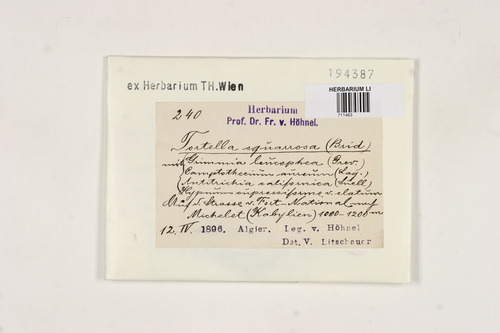 194387
ex Herbarium TH.Wien
HERBARIUM LI
711453
240
Herbarium
Prof. Dr. Fr. v. Höhnel.
Tortella squarrosa (Brid)
mit Grimmia leucophea (Grev.)
Camptothecium aureum (Lag.)
Antitrichia californica (Sull)
Hypnum cupressiforme v. elatum
Auf d. Strasse v. Fort-National auf
Michelet (Kabylien) 1000-1200 m
12. IV. 1896. Algier. Leg. v. Höhnel
Det. V. Litschauer